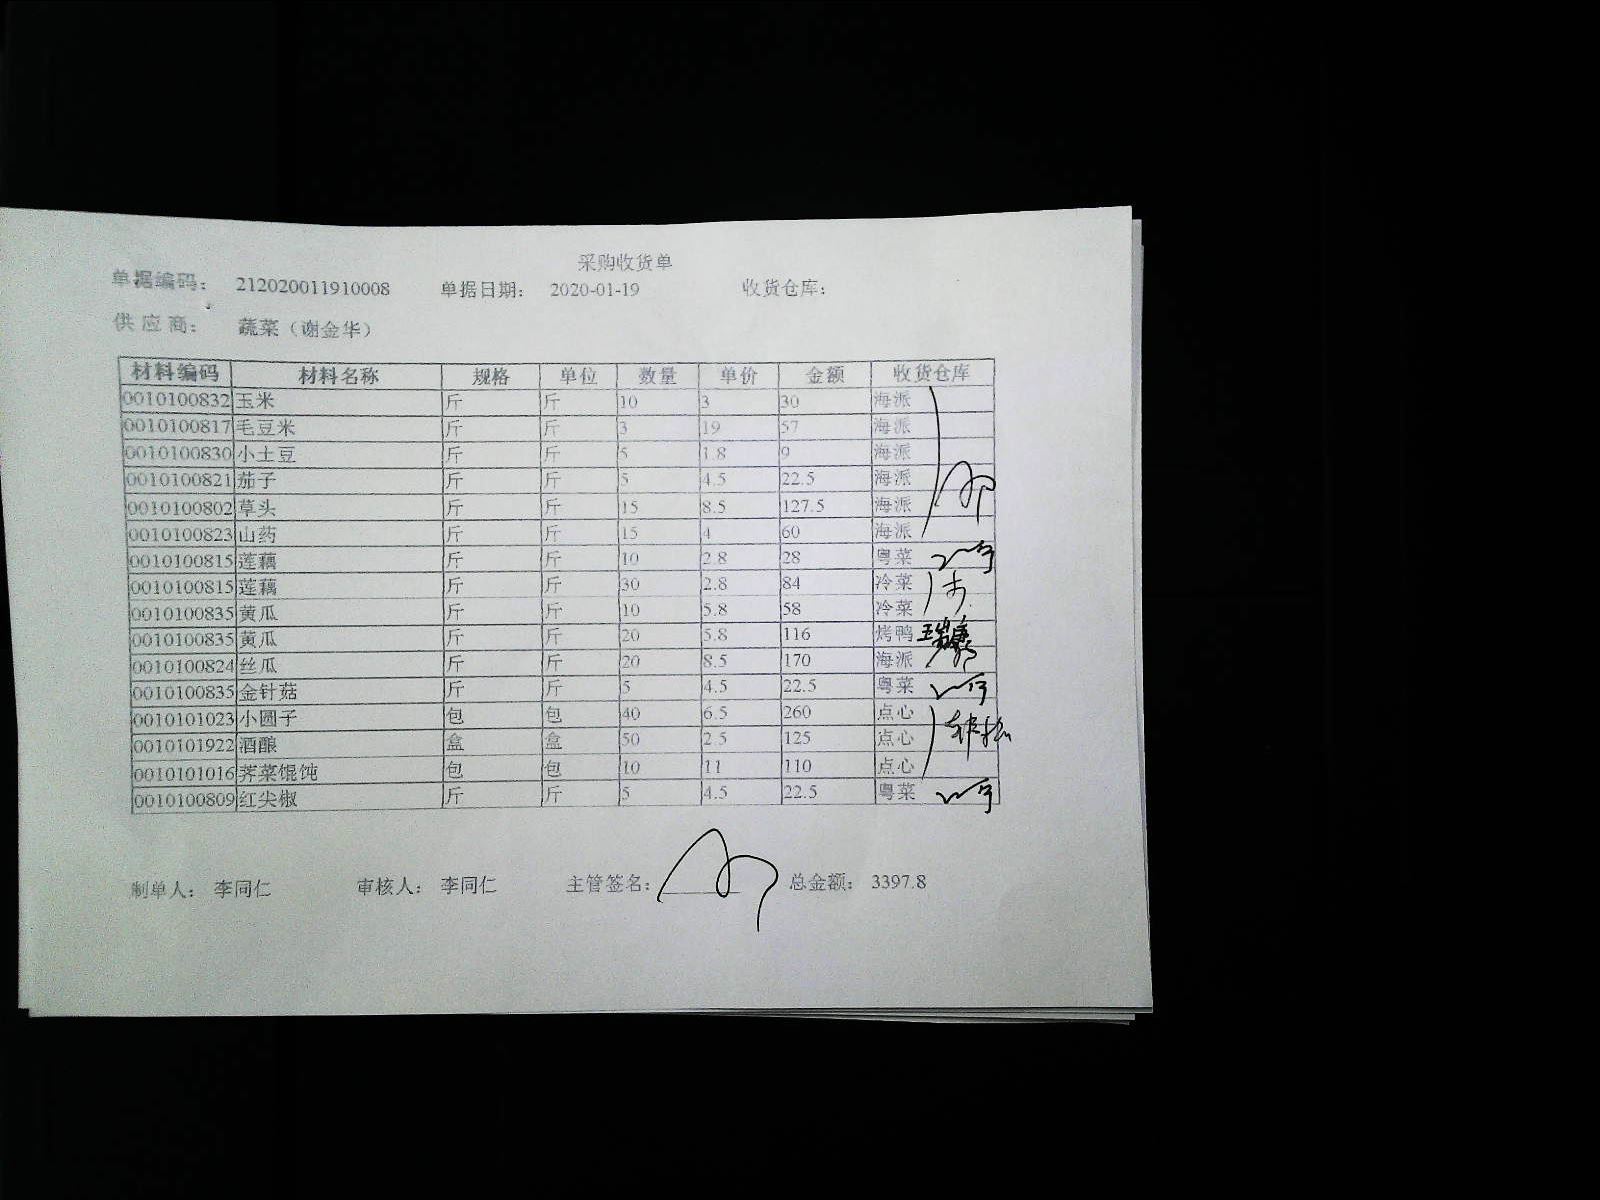 采购收货单
单据编码： 212020011910008 单据日期： 2020-01-19 收货仓库：
供 应 商： 蔬菜（谢金华）
材料编码 材料名称 规格 单位 数量 单价 金额 收货仓库
0010100832 玉米 斤 斤 10 3 30 海派
0010100817 毛豆米 斤 斤 3 19 57 海派
0010100830 小土豆 斤 斤 5 1.8 9 海派
0010100821 茄子 斤 斤 5 4.5 22.5 海派
0010100802 草头 斤 斤 15 8.5 127.5 海派
0010100823 山药 斤 斤 15 4 60 海派
0010100815 莲藕 斤 斤 10 2.8 28 粤菜
0010100815 莲藕 斤 斤 30 2.8 84 冷菜
0010100835 黄瓜 斤 斤 10 5.8 58 冷菜
0010100835 黄瓜 斤 斤 20 5.8 116 烤鸭
0010100824 丝瓜 斤 斤 20 8.5 170 海派
0010100835 金针菇 斤 斤 5 4.5 22.5 粤菜
0010101023 小圆子 包 包 40 6.5 260 点心
0010101922 酒酿 盒 盒 50 2.5 125 点心
0010101016 荠菜馄饨 包 包 10 11 110 点心
0010100809 红尖椒 斤 斤 5 4.5 22.5 粤菜
制单人： 李同仁 审核人： 李同仁 主管签名： 总金额： 3397.8